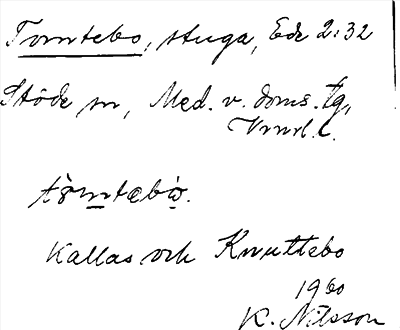 Tomtebo, stuga, Ede 2:32
Stöde sn, Med. v. doms. tg,
Vnrl. l.
tòmtæbò.
Kallas och Knuttebo
1960
K. Nilsson